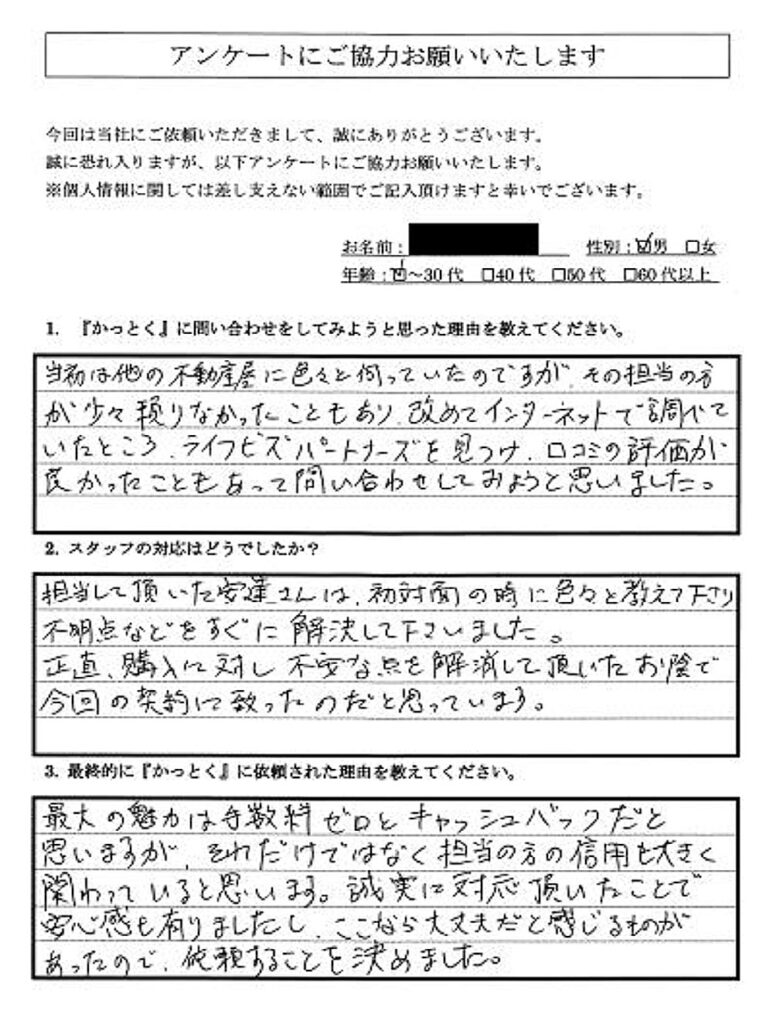 アンケートにご協力お願いいたします
今回は当社にご依頼いただきまして、誠にありがとうございます。
誠に恐れ入りますが、以下アンケートにご協力お願いいたします。
※個人情報に関しては差し支えない範囲でご記入頂けますと幸いでございます。
お名前： 性別：☑男 □女
年齢：☑～30代 □40代 □50代 □60代以上
1. 『かっとく』に問い合わせをしてみようと思った理由を教えてください。
当初は他の不動産屋に色々と伺っていたのですが、その担当の方
が少々頼りなかったこともあり、改めてインターネットで調べて
いたところ、ライフビズパートナーズを見つけ、口コミの評価が
良かったこともあって問い合わせしてみようと思いました。
2. スタッフの対応はどうでしたか？
担当して頂いた安達さんは、初対面の時に色々と教えて下さり
不明点などをすぐに解決して下さいました。
正直、購入に対し不安な点を解消して頂いたお陰で
今回の契約に致ったのだと思っています。
3. 最終的に『かっとく』に依頼された理由を教えてください。
最大の魅力は手数料ゼロとキャッシュバックだと
思いますが、それだけではなく担当の方の信用も大きく
関わっていると思います。誠実に対応頂いたことで
安心感も有りましたし、ここなら大丈夫だと感じるものが
あったので、依頼することを決めました。